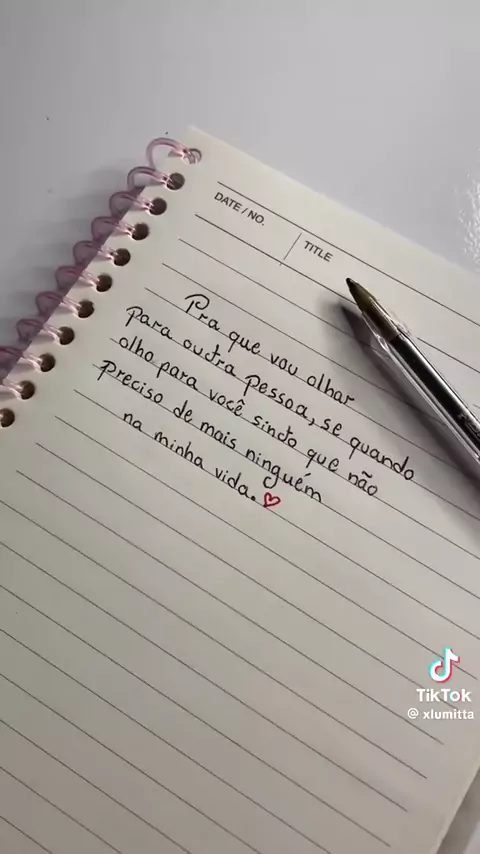 DATE / NO.
TITLE
Pra que vou olhar
para outra pessoa, se quando
olho para você sinto que não
preciso de mais ninguém
na minha vida.
TikTok
@ xlumitta